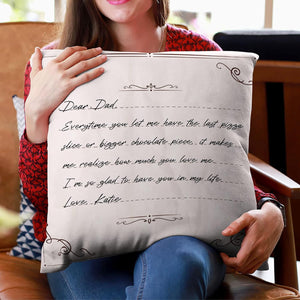 Dear Dad,
Everytime you let me have the last pizza
slice or bigger chocolate piece, it makes
me realize how much you love me.
I'm so glad to have you in my life.
Love, Katie